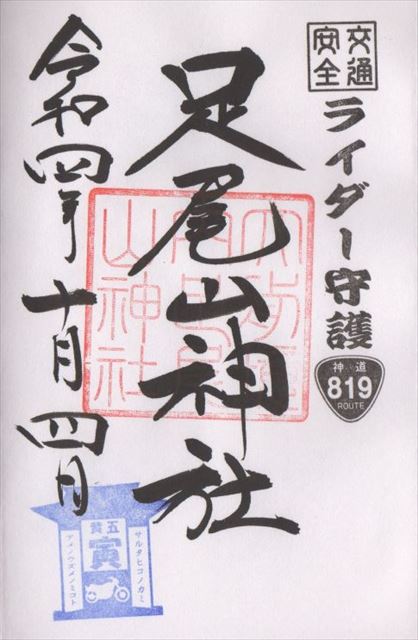 交通
安全
ライダー守護
神道
819
ROUTE
足尾山神社
山神社
令和四年十月四日
五黄
寅
サルタヒコノカミ
アメノウズメノミコト